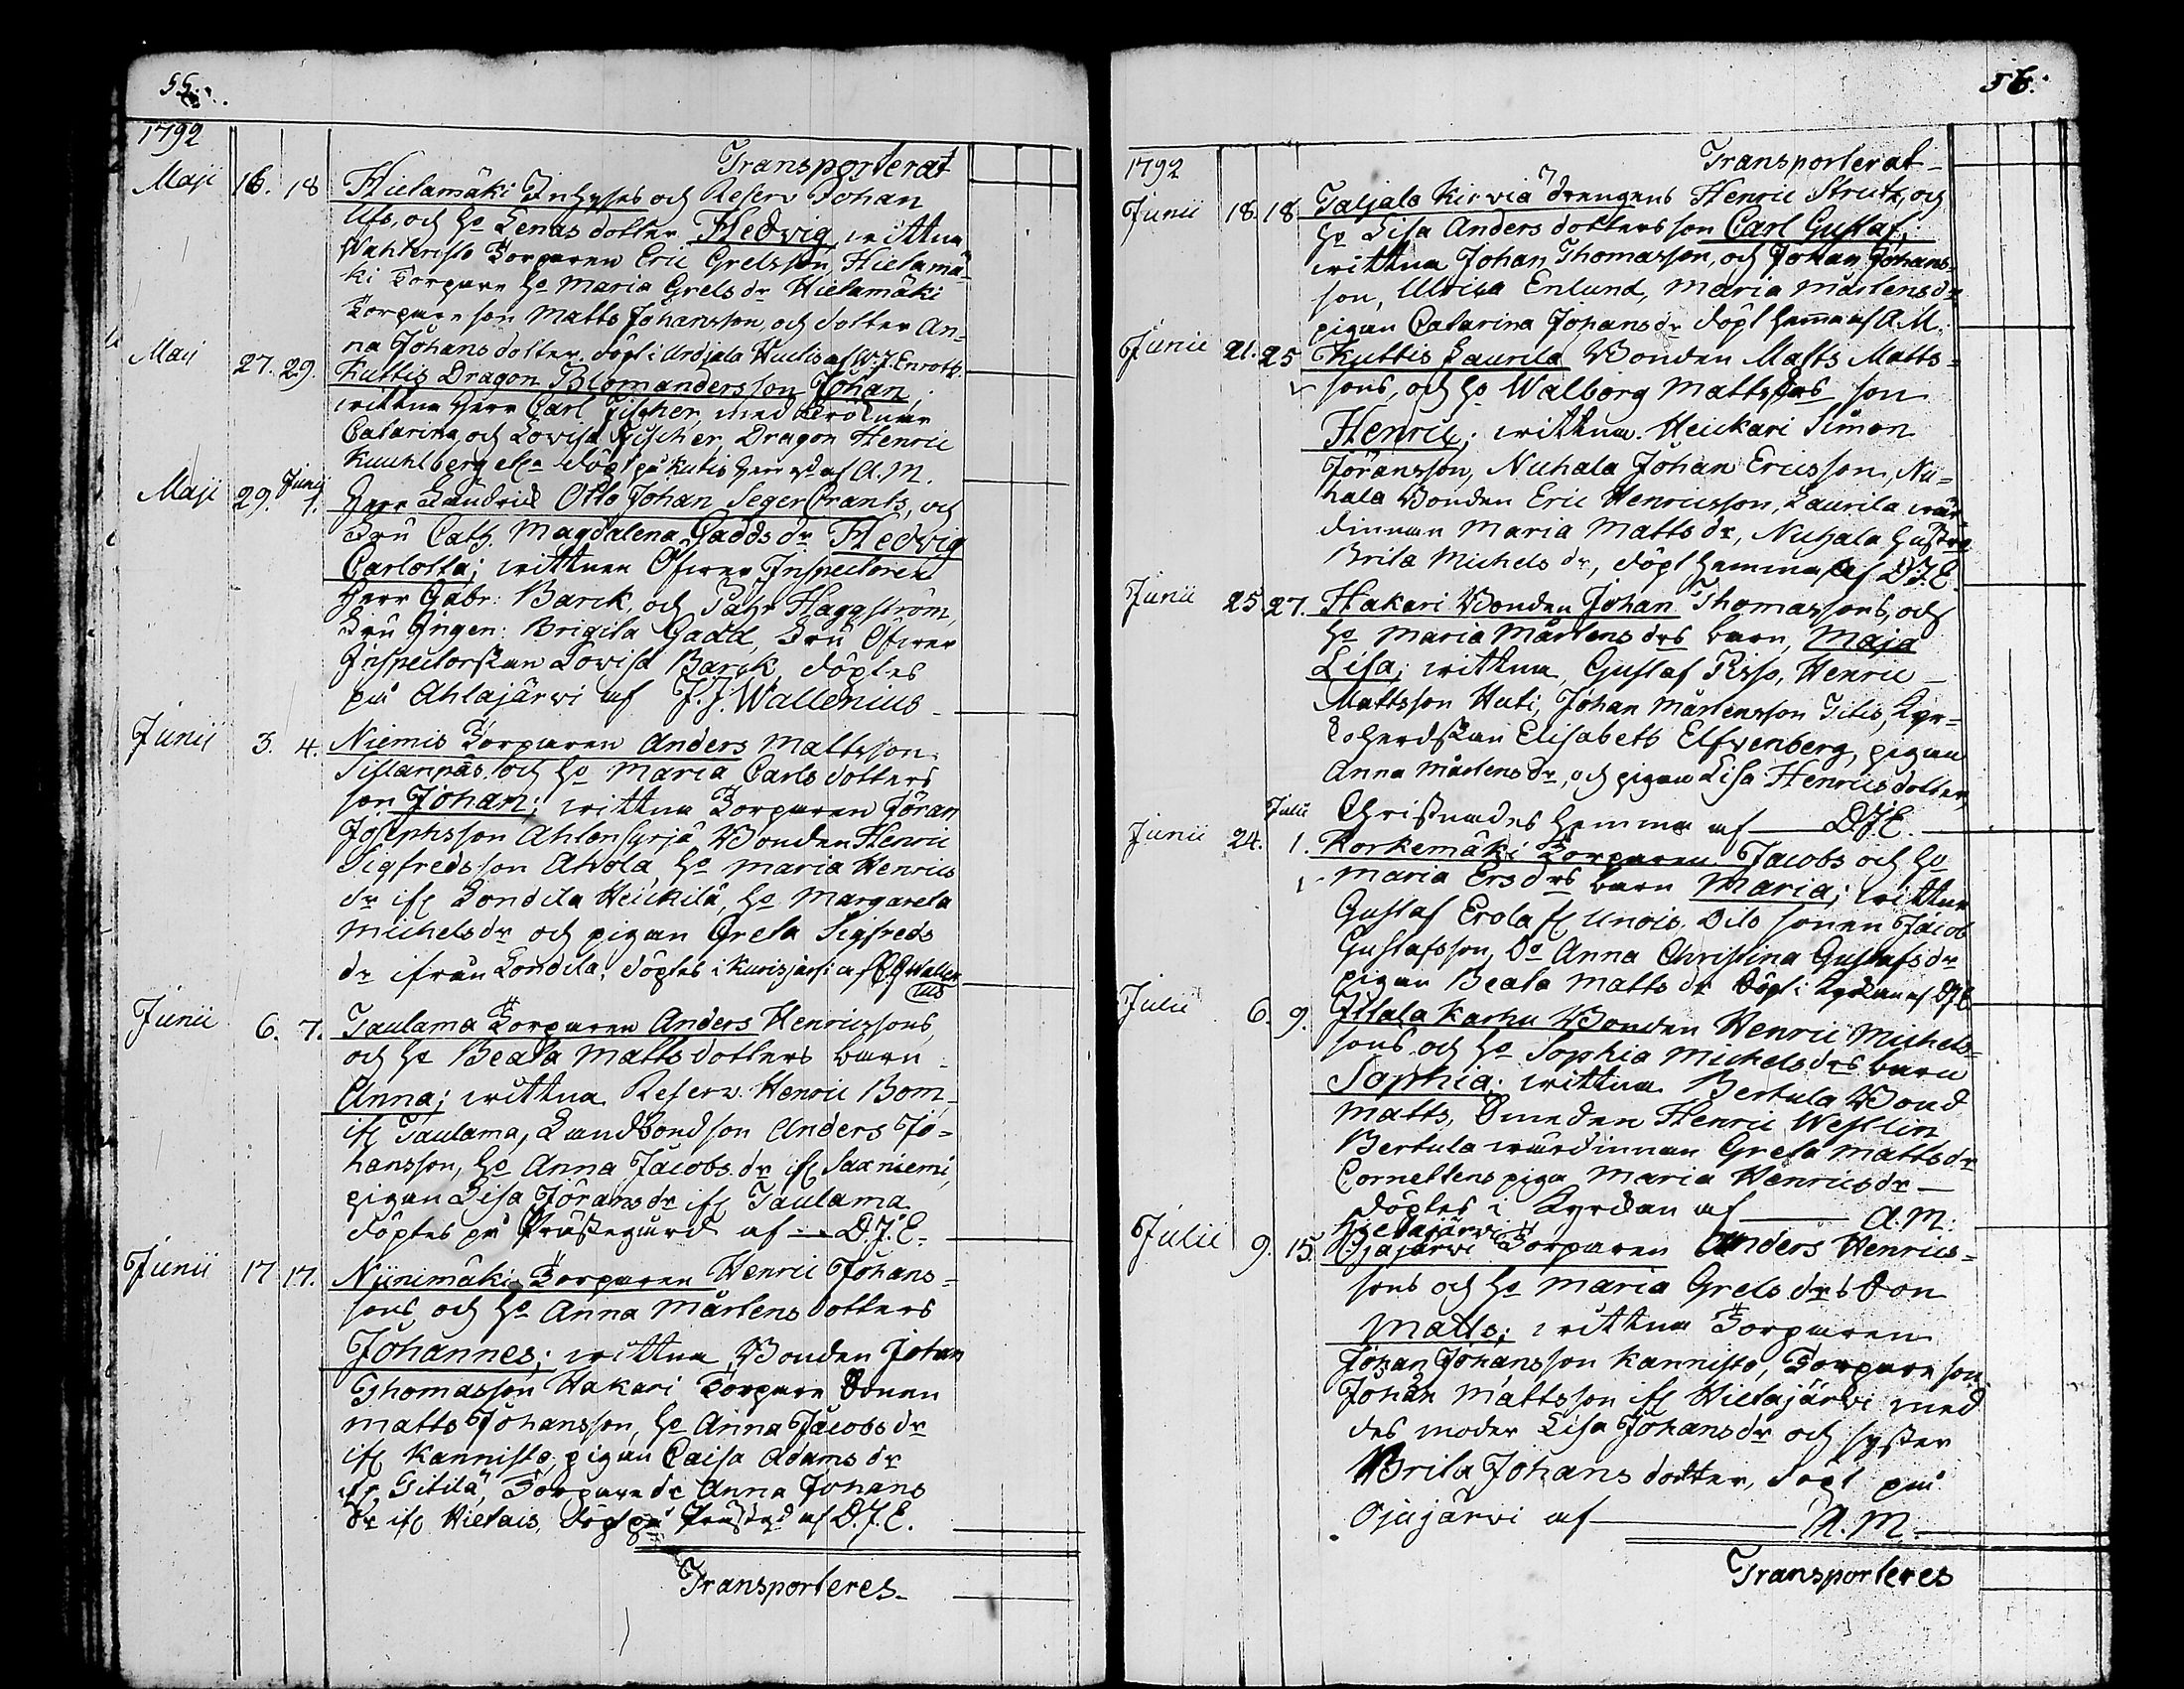 55.
1792
Transporterat
Maji 16. 18 Hietamäki Inhyses och Reserv Johan
Ufs, och ho Lenas dotter Hedvig, wittna
Wahteristo Torparen Eric Grelsson, Hietamä-
ki Torpare ho Maria Grels dr Hietamäki
Torpare son Matts Johansson, och dotter An-
na Johans dotter. döpt i Urdjala Huhtis af D. J. Enroth.
Maij 27. 29. Kuttis Dragon Blomandersson Johan,
wittna Herr Carl Fischer, med Fröknar
Catarina och Lovisa Fischer, Dragon Henric
Kuuhlberg etc döpt på Kutis herrgd af A. M.
Maji 29. Junij 1. Herr Landric Otto Johan Seger Crants, och
Fru Cath. Magdalena Gadds dr Hedvig
Carlotta; wittnen Öfwer Inspectoren
Herr Gabr: Barck, och Haggström,
Fru Ingen: Brigita Gadd, Fru Öfwer
Inspectorskan Lovisa Barck, döptes
på Ahlajärwi af J. J. Wallenius
Junij 3. 4. Niemis Torparen Anders Mattsson
Sillanpäs. och ho Maria Carls dotters
son Johan; wittna Torparen Jöran
Josephsson Ahlensyrjä Bonden Henric
Sigfredsson Ahola, ho Maria Henrics
dr ifr Londila Heickilä, ho Margareta
Michelsdr och pigan Greta Sigfreds
dr ifrån Londila. döptes i Kurisjärfi af J. J. Walle-
nius
Junii 6. 7. Taulama Torparen Anders Henricssons,
och ho Beata Matts dotters barn
Anna; wittna Reserv. Henric Bom
ifr Taulama, Landbondson Anders Jo-
hansson, ho Anna Jacobs dr ifr Saxniemi,
pigan Lisa Jörans dr ifr Taulama
döptes på Prästegård af D. J. E.
Junii 17 17. Niinimäki Torparen Henric Johans-
sons och ho Anna Mårtens dotters
Johannes; wittna Bonden Johan
Thomasson Hakari Torpare Sonen
Matts Johansson, ho Anna Jacobs dr
ifr Kannisto, pigan Caisa Adams dr
ifr Titilä, Torpare dr Anna Johans
dr ifr Hietais, döpt på Prästgd af D. J. E.
Transporteres
56.
1792
Transporterat
Junii 18. 18 Taljala Kirwiä drengens Henric Strutz, och
ho Lisa Anders dotters son Carl Gustaf;
wittna Johan Thomasson, och Johan Johans-
son, Ulrica Enlund, Maria Mårtens dr
pigan Catarina Johans dr döpt hemma af A. M.
Junii 21. 25 Kuttis Laurila Bonden Matts Matts-
sons, och ho Walborg Matts drs son
Henric; wittna. Heickari Simon
Jöransson, Nuhala Johan Ericsson, Nu-
hala Bonden Eric Henricsson, Laurila wär-
dinnan Maria Matts dr, Nuhala hustru
Brita Michels dr, döpt hemma af D. J. E.
Junii 25 27. Hakari Bonden Johan Thomassons, och
ho Maria Mårtens drs barn, Maja
Lisa; wittna, Gustaf Risso, Henric
Mattsson Huti, Johan Mårtensson Titis, Kyr-
koherdskan Elisabeth Elfvenberg, pigan
Anna Mårtens dr, och pigan Lisa Henrics dotter,
Christnades hemma af D. J. E.
Junii 24. Julii 1. Korkemäki Torparen Jacobs och ho
Maria Ers drs barn Maria; wittna
Gustaf Erola fr Unois, Dito sonen Jacob
Gustafsson, Do Anna Christina Gustafs dr
pigan Beata Matts dr döpt i Kyrkan af D. J. E.
Julii 6. 9. Jttala Karhu Bonden Henric Michels-
sons och ho Sophia Michels drs barn
Sophia; wittna Bertula Bond
Matts, Smeden Henric Wesllin
Bertula wärdinnan Greta Matts dr
Cornettens piga Maria Henrics dr
döptes i Kyrkan af A. M.
Hietajärwi
Julii 9. 15. Ojajärwi Torparen Anders Henrics-
sons och ho Maria Grels drs Son
Matts; wittna Torparen
Johan Johansson Kannisto, Torpare son
Johan Mattsson ifr Hietajärwi med
des moder Lisa Johans dr och syster
Brita Johans dotter, döpt på
Ojajärwi af A. M.
Transporteres